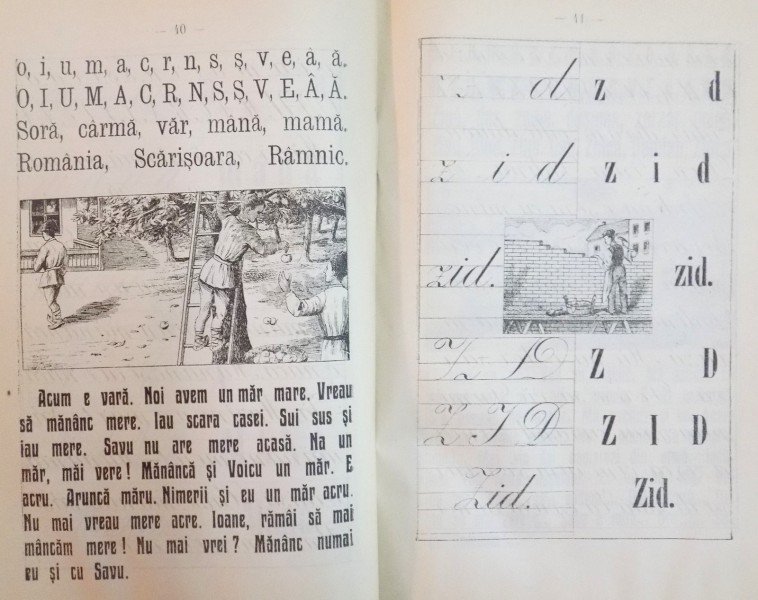 — 40 —
o, i, u, m, a, c, r, n, s, ș, v, e, â, ă.
O, I, U, M, A, C, R, N, S, Ș, V, E, Â, Ă.
Soră, cârmă, văr, mână, mamă.
România, Scărișoara, Râmnic.
Acum e vară. Noi avem un măr mare. Vreau
să mănânc mere. Iau scara casei. Sui sus și
iau mere. Savu nu are mere acasă. Na un
măr, măi vere! Mănâncă și Voicu un măr. E
acru. Aruncă măru. Nimerii și eu un măr acru.
Nu mai vreau mere acre. Ioane, rămâi să mai
mâncăm mere! Nu mai vrei? Mănânc numai
eu și cu Savu.
— 41 —
z d z d
z i d z i d
zid. zid.
Z D Z D
Z I D Z I D
Zid. Zid.